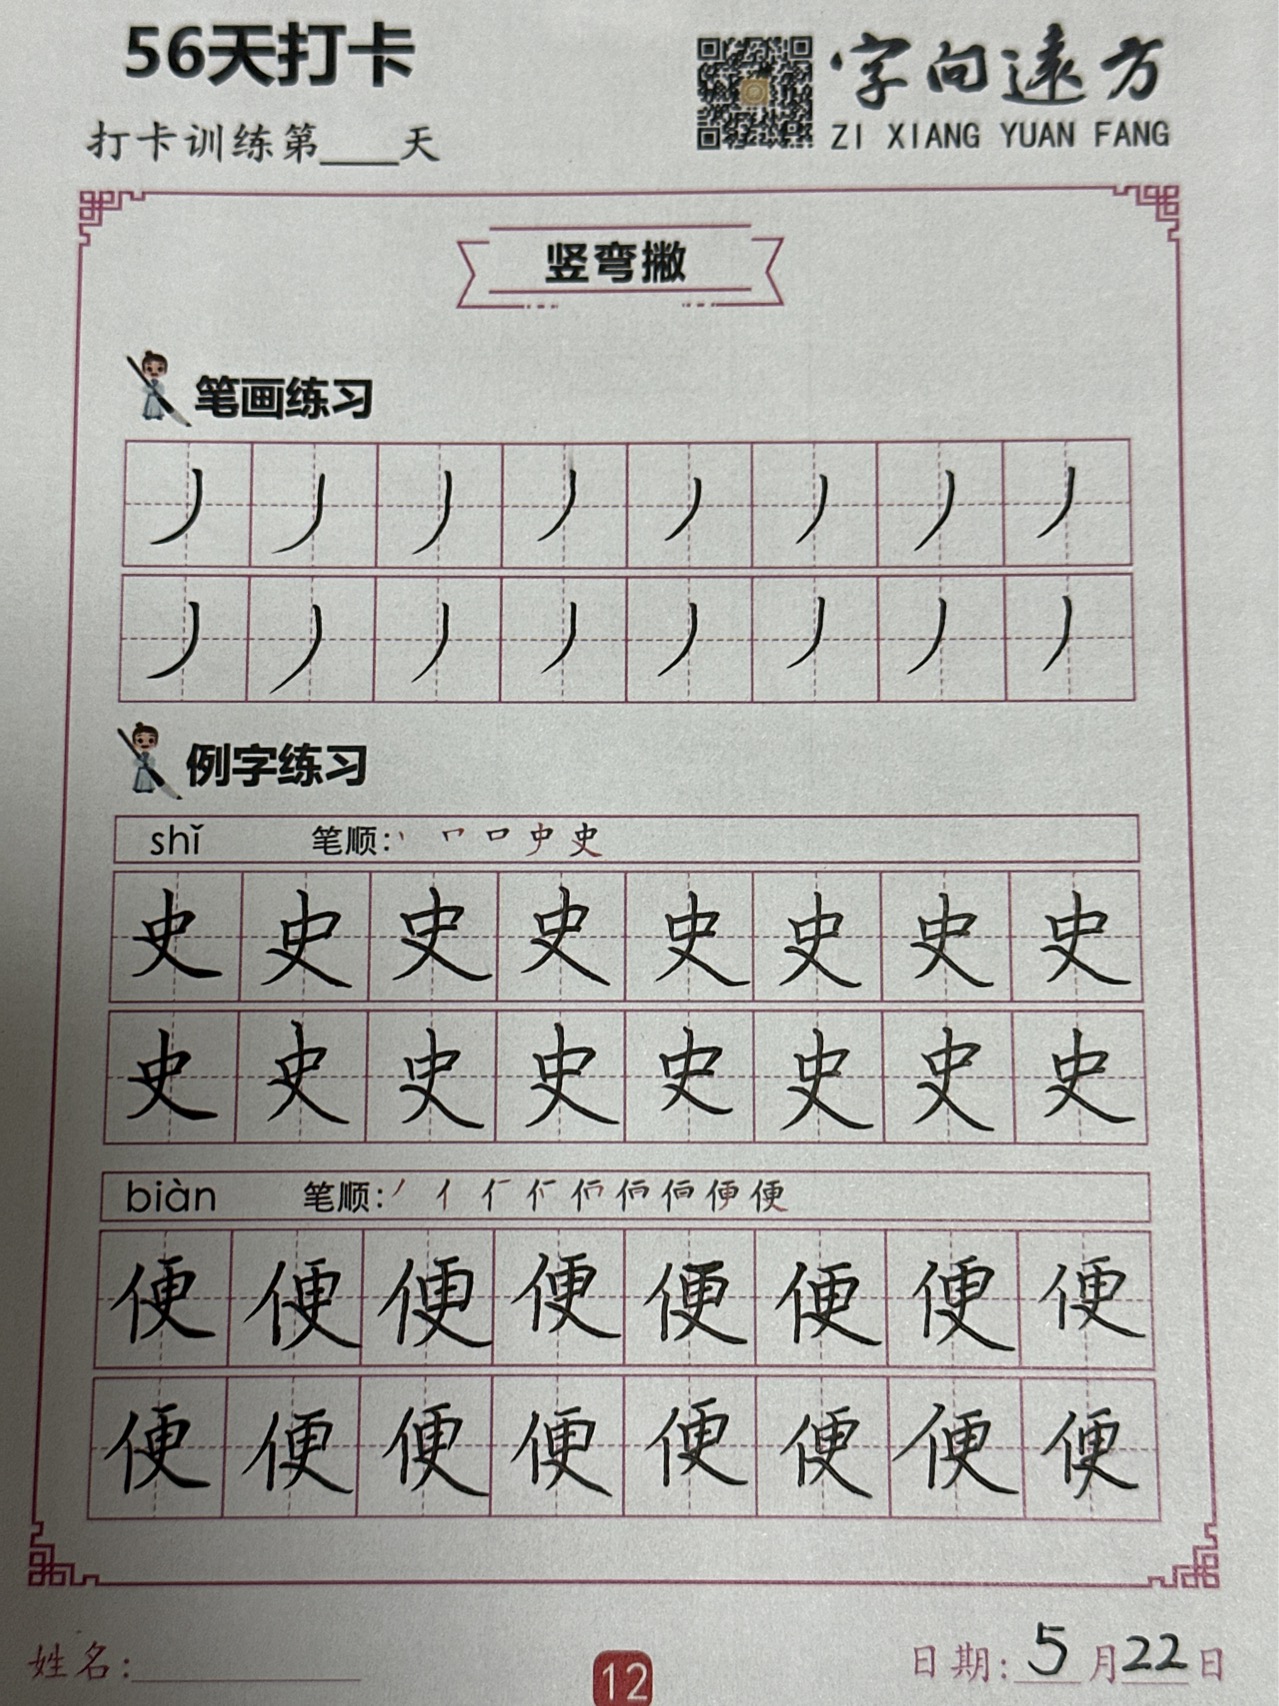 56天打卡
字向远方
打卡训练第____天
ZI XIANG YUAN FANG
竖弯撇
笔画练习
丿丿丿丿丿丿丿丿
丿丿丿丿丿丿丿丿
例字练习
shǐ 笔顺: 丶 𠃍 口 史 史
史史史史史史史史
史史史史史史史史
biàn 笔顺: 丿 亻 便
便便便便便便便便
便便便便便便便便
姓名:
12
日期: 5月22日